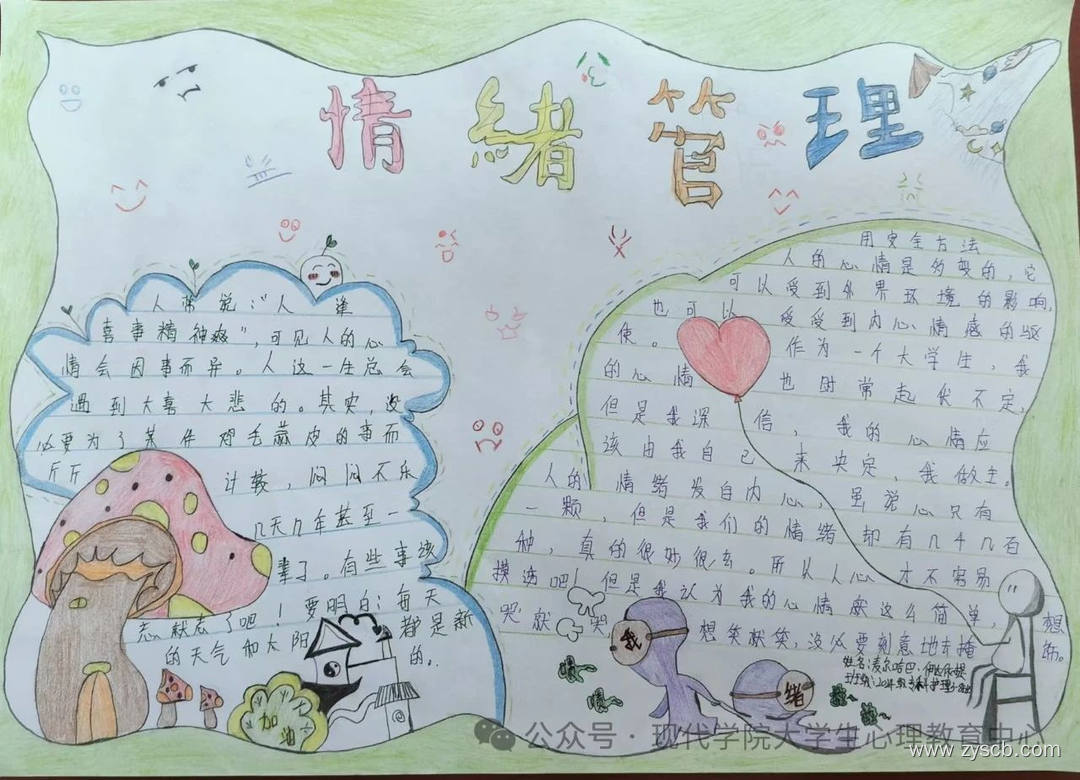 情緒管理
人常说："人逢
喜事精神爽"，可见人的心
情会因事而异。人这一生总会
遇到大喜大悲的。其实，没
必要为了某件鸡毛蒜皮的事而
斤斤计较，闷闷不乐
几天几年甚至一
辈子。有些事该
忘就忘了吧！要明白：每天
的天气和太阳都是新
的。
加油
用安全方法
人的心情是多变的，它
可以受到外界环境的影响，
也可以受到内心情感的驱
使。作为一个大学生，我
的心情也时常起伏不定，
但是我深信，我的心情应
该由我自己来决定，我做主。
人的情绪发自内心，虽说心只有
一颗，但是我们的情绪却有几千几百
种，真的很妙很玄。所以人心才不容易
摸透吧！但是我认为我的心情应这么简单，想
哭就哭，想笑就笑，没必要刻意地去掩饰。
我
绪
公众号·现代学院大学生心理教育中心
www.zyscb.com